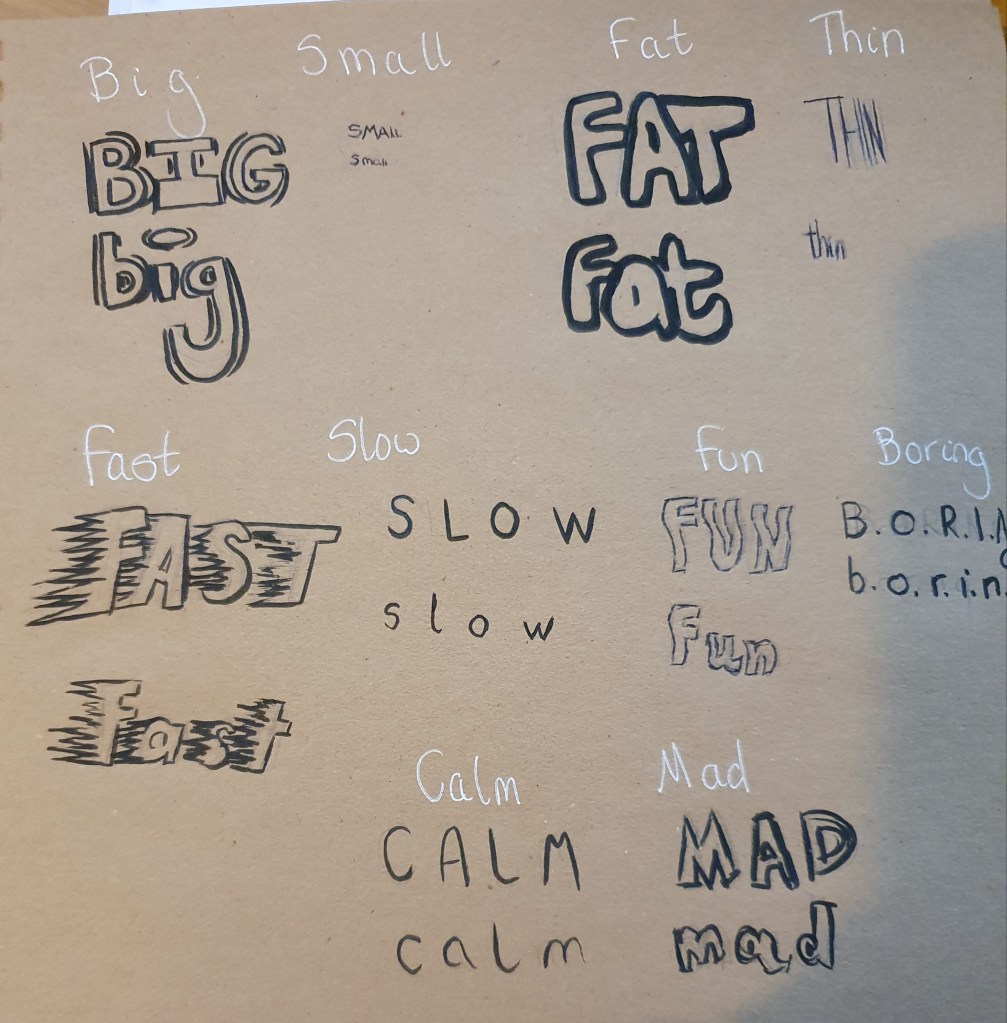 Big Small Fat Thin
BIG SMALL FAT THIN
big Small Fat thin
Fast Slow Fun Boring
FAST SLOW FUN B.O.R.I.N
Fast slow Fun b.o.r.i.n.
Calm Mad
CALM MAD
calm mad